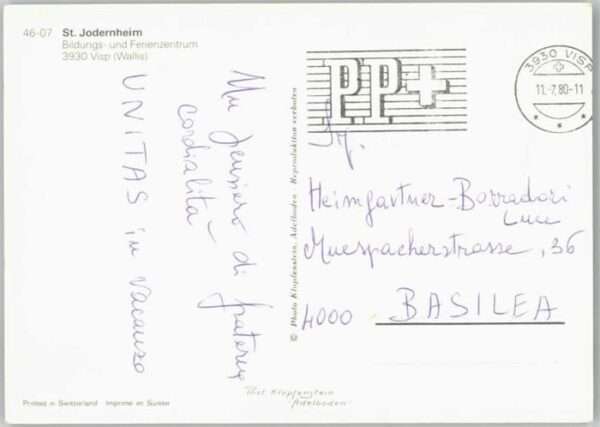 46-07 St. Jodernheim
Bildungs- und Ferienzentrum
3930 Visp (Wallis)
Un pensiero di fraterna
cordialità
UNITAS in vacanza
© Photo Klopfenstein, Adelboden - Reproduktion verboten
P.P.+
3930 VISP
11.-7.80-11
Heimgartner-Borradori
Luce
Muespacherstrasse, 36
4000 BASILEA
Printed in Switzerland Imprimé en Suisse
Phot Klopfenstein
Adelboden